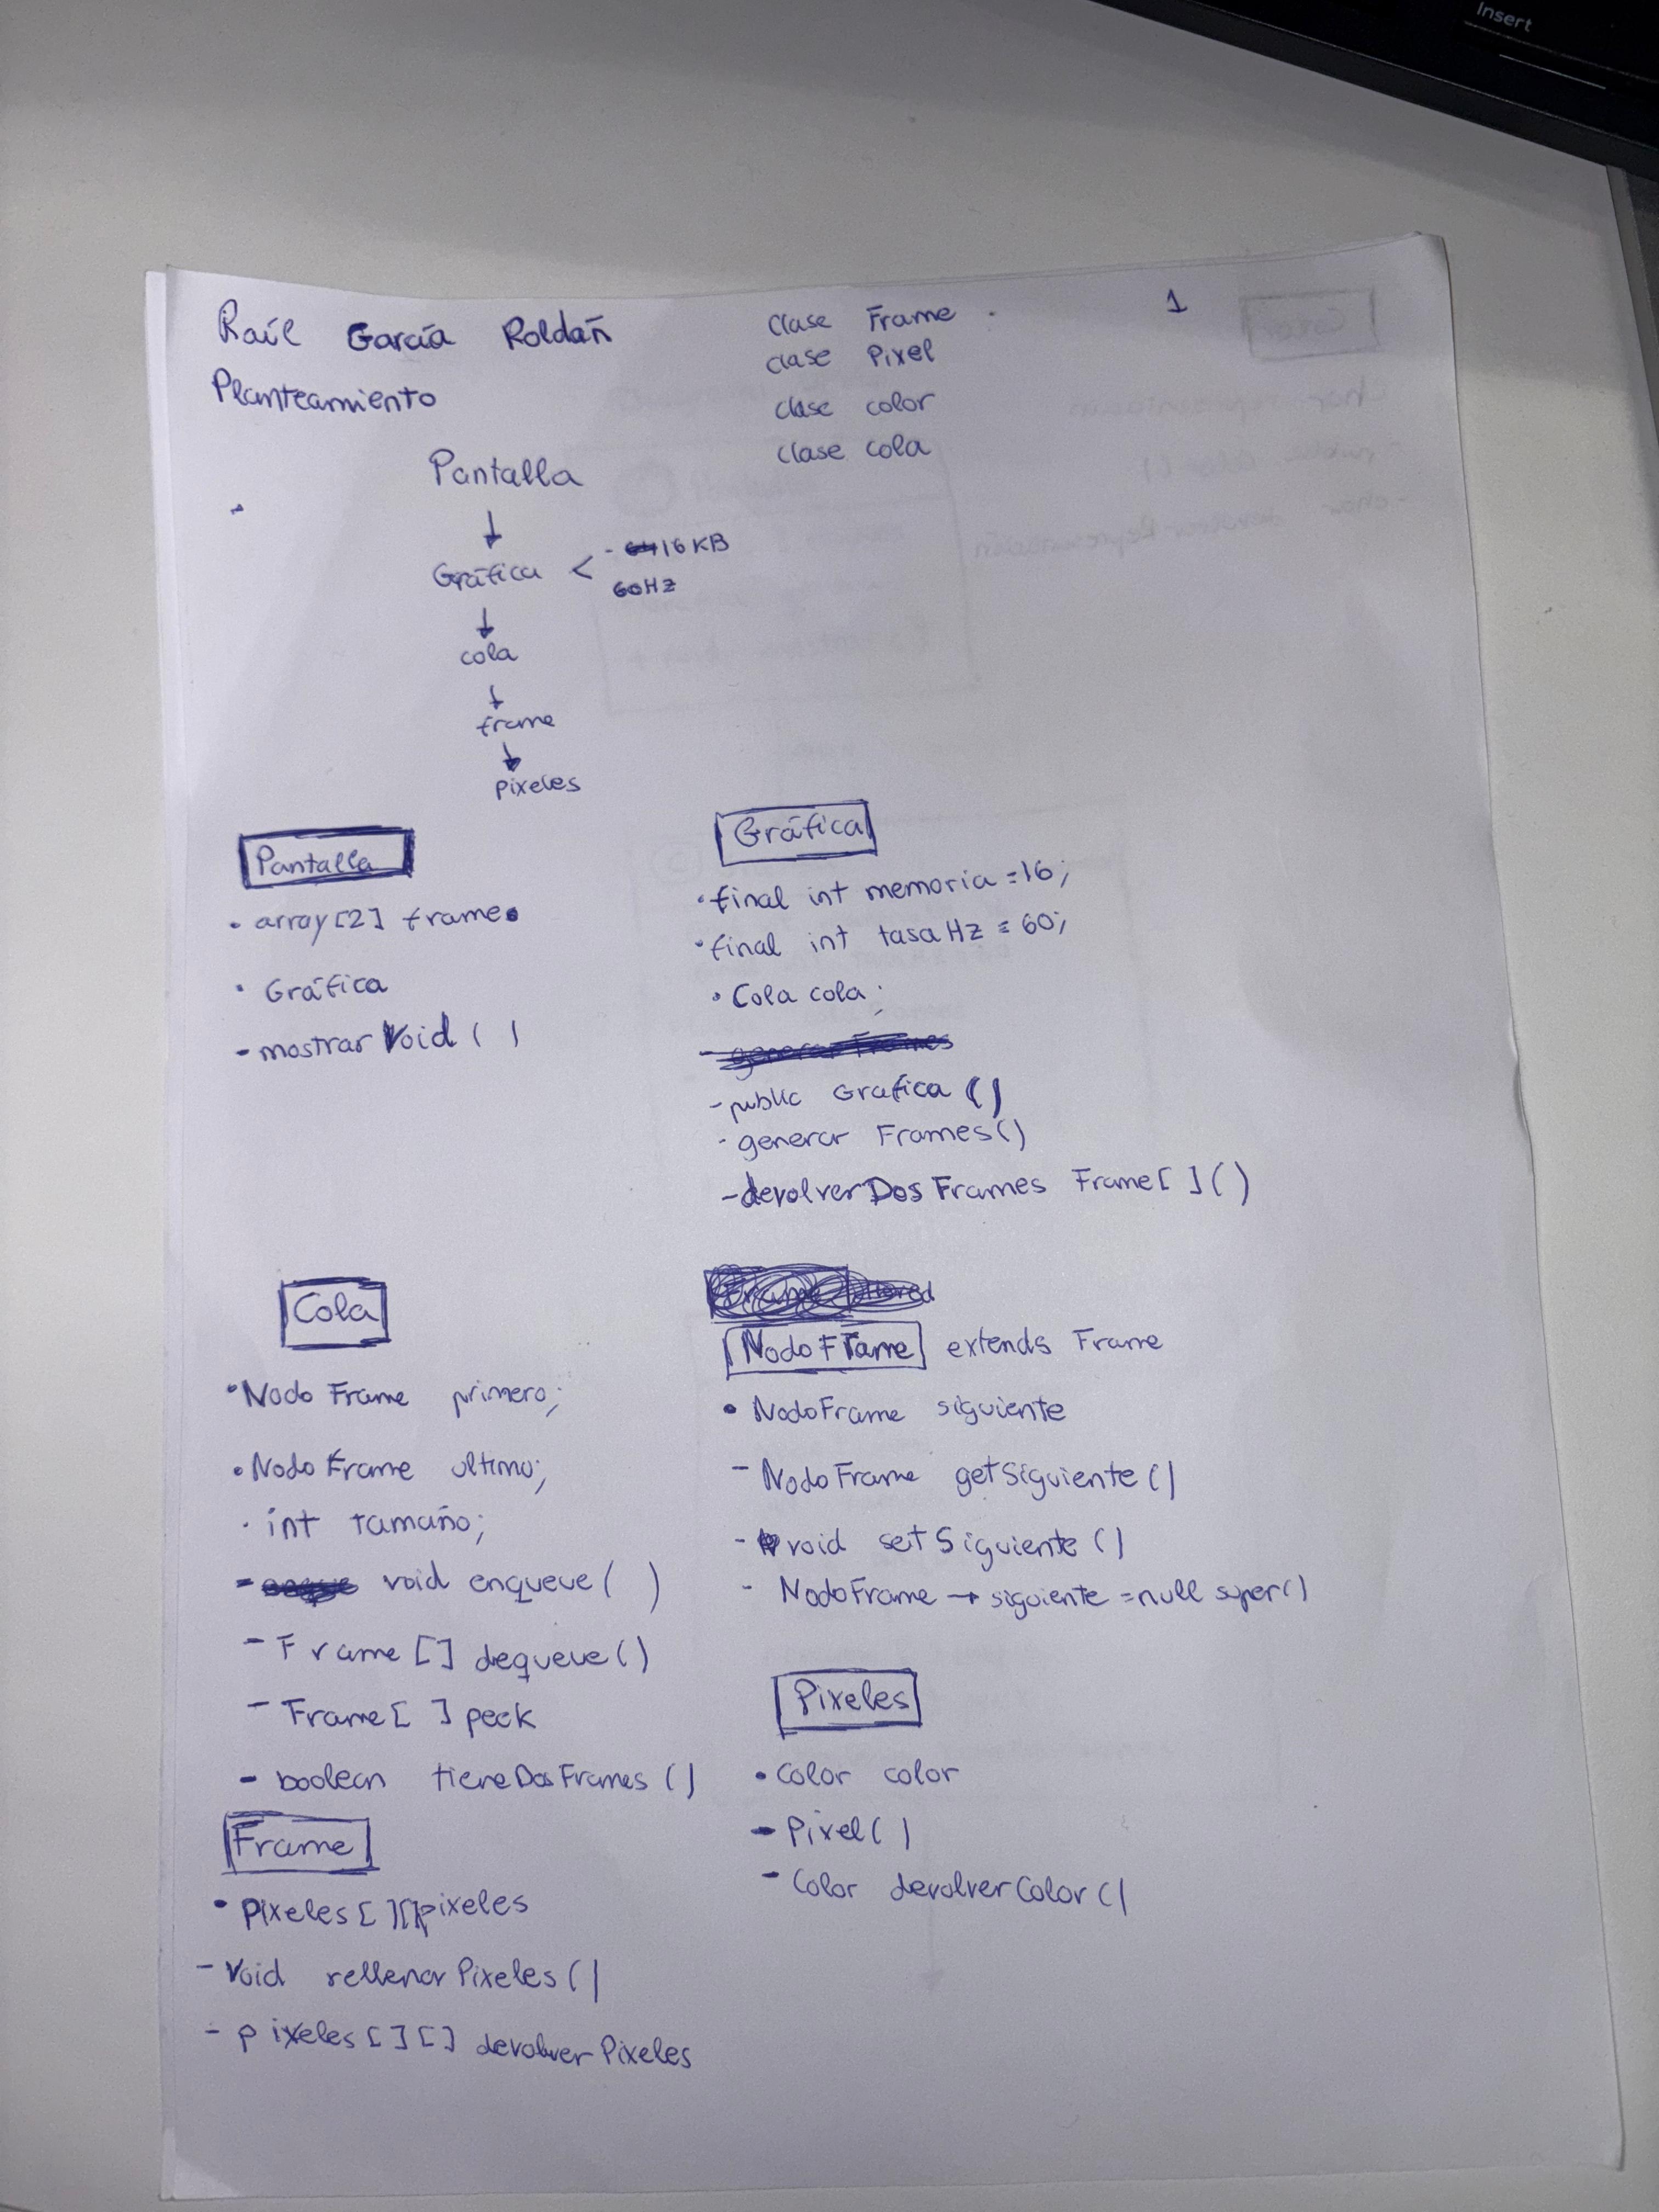 Insert
Raúl García Roldán
Planteamiento
clase Frame
clase Pixel
clase color
clase cola
1
Pantalla
Gráfica < - 16 KB
60Hz
cola
frame
pixeles
Pantalla
• array[2] frame
• Gráfica
- mostrar Void ( )
Gráfica
• final int memoria = 16;
• final int tasaHz = 60;
• Cola cola;
- generar Frames
- public Grafica ()
- generar Frames()
- devolverDos Frames Frame[ ] ()
Cola
• Nodo Frame primero;
• Nodo Frame ultimo;
• int tamaño;
- void enqueue ( )
- Frame [] dequeue ()
- Frame [ ] peek
- boolean tieneDosFrames ()
NodoFrame extends Frame
• NodoFrame siguiente
- NodoFrame getSiguiente ()
- void setSiguiente ()
- NodoFrame → siguiente = null super()
Pixeles
• Color color
- Pixel( )
- Color devolver Color ()
Frame
• Pixeles [ ][] pixeles
- Void rellenar Pixeles ()
- pixeles [ ] [ ] devolver Pixeles